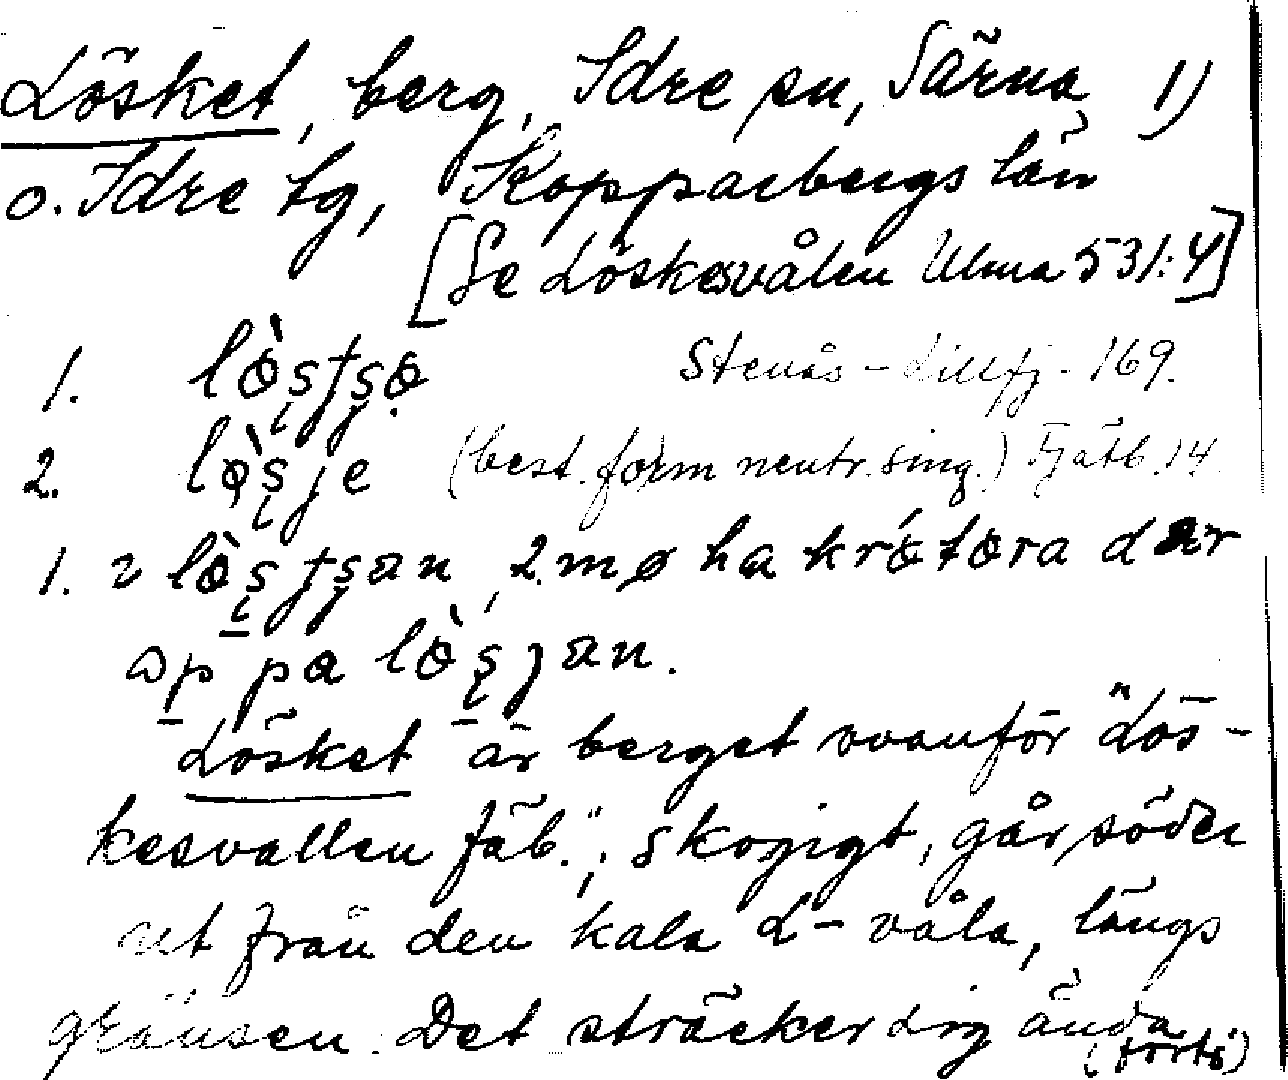 Lösket, berg, Idre sn, Särna 1)
o. Idre tg, Kopparbergs län
[Se Löskesvålen Ulma 531:4]
1. lò̤şţşə Stenås - Lillfj. 169.
2. lò̤şje (best. form neutr. sing.) Fjätb. 14.
1. lò̤şţşan, 2. mø ha krǿtəra dar
əp pa lò̤şjan.
Lösket är berget ovanför "Lös-
kesvallen fäb."; skogigt, går söder
ut från den kala L-våla, längs
gränsen. Det sträcker sig ända
(forts)